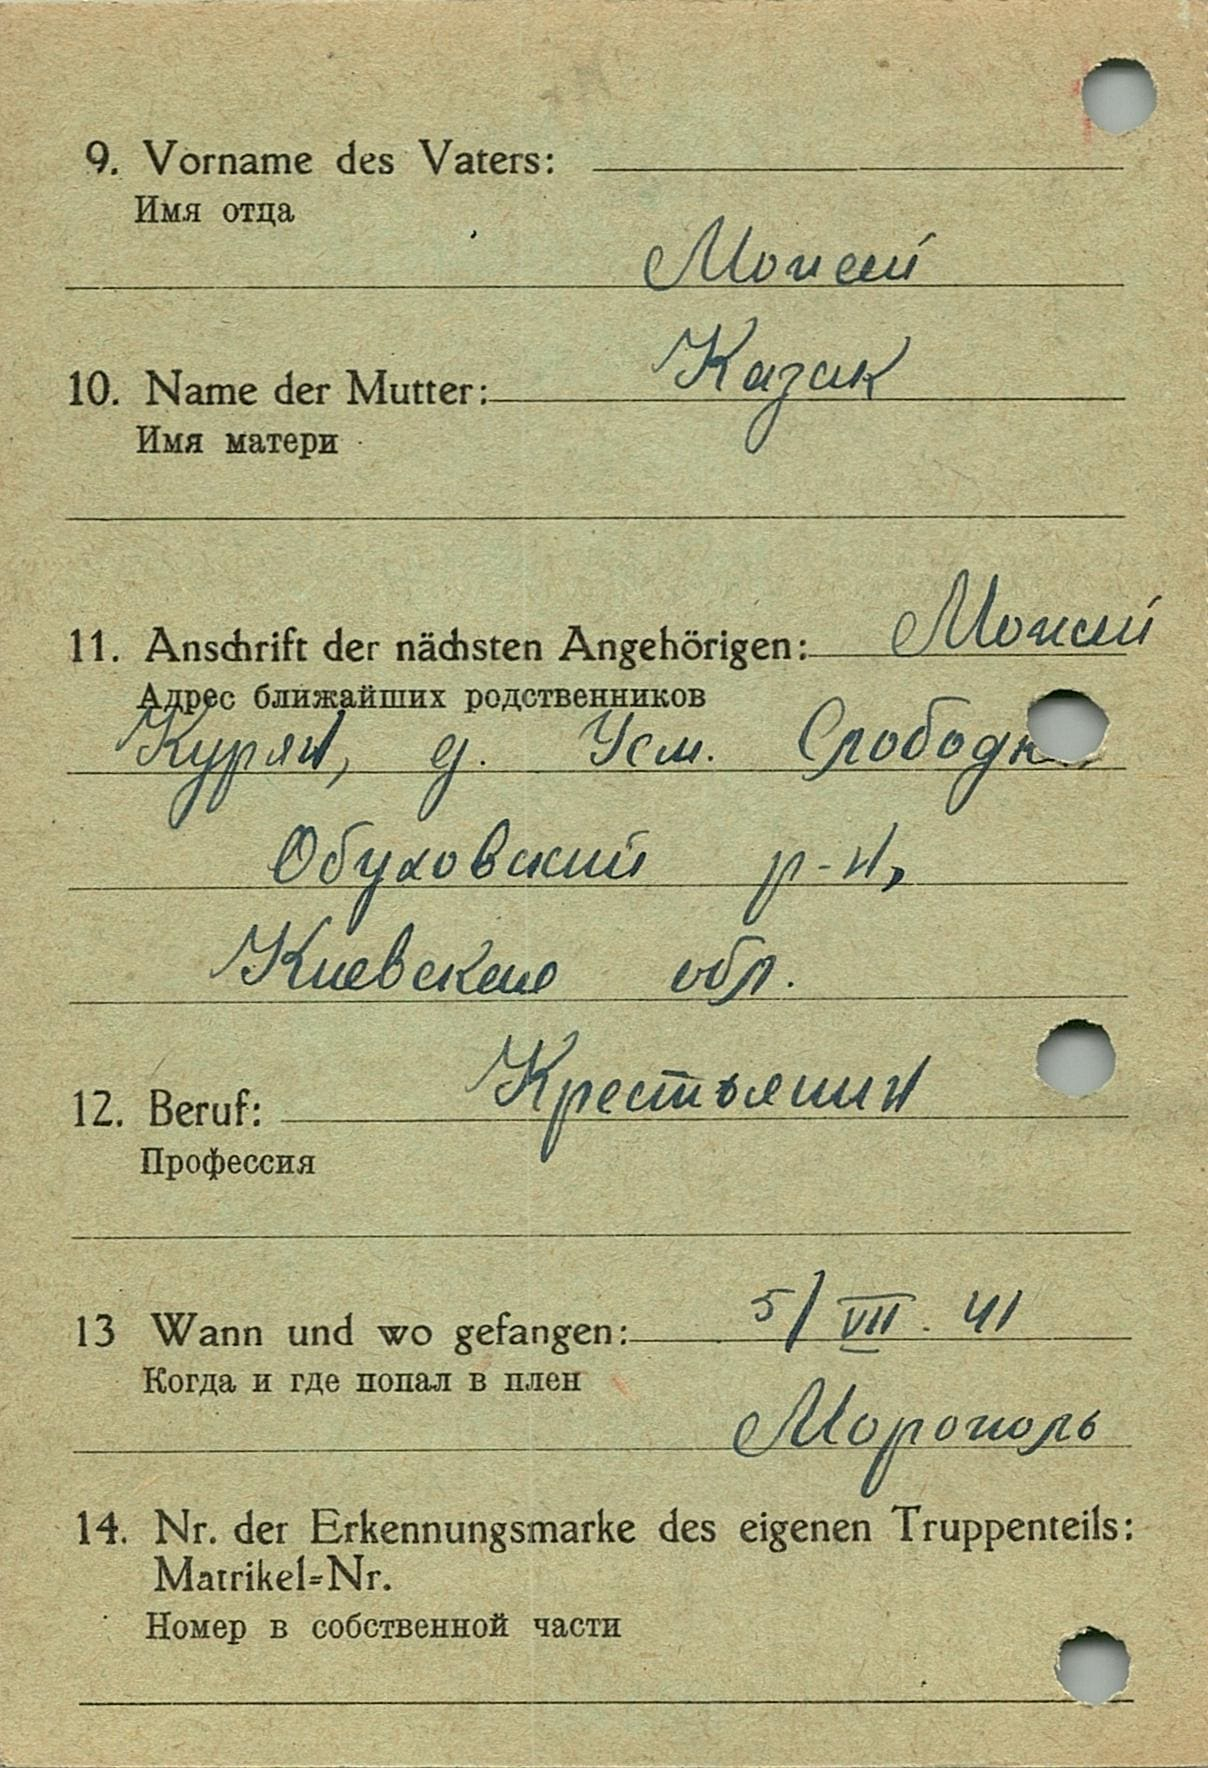 9. Vorname des Vaters:
Имя отца
Моисей
10. Name der Mutter: Казак
Имя матери
11. Anschrift der nächsten Angehörigen: Моисей
Адрес ближайших родственников
д. Усм. Слободка
Обуховский р-н,
Киевская обл.
12. Beruf: Крестьянин
Профессия
13 Wann und wo gefangen: 5/VII. 41
Когда и где попал в плен
Морополь
14. Nr. der Erkennungsmarke des eigenen Truppenteils:
Matrikel=Nr.
Номер в собственной части